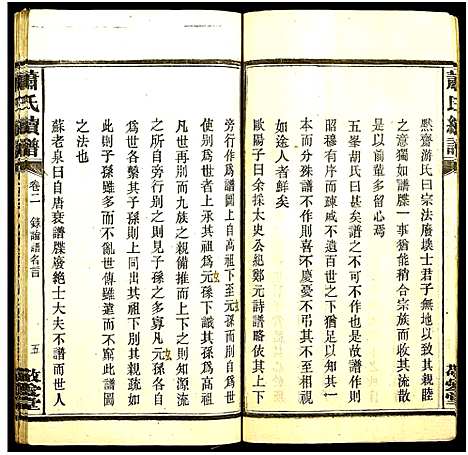 蕭氏續譜
默齋游氏曰宗法廢壞士君子無所以致其親睦
之意獨如譜牒一事猶能稍合其既往而收其流散
是以前輩多留心焉
五峯胡氏曰甚矣譜之不可不作也是故譜作則
昭穆有序而疎戚不遺百世之下猶足以知其一
本而分殊譜不作則喜不慶憂不弔其不至相視
如途人者鮮矣
歐陽子曰余採太史公紀鄭元詩譜略依其上下
旁行作爲譜圖上自高祖下至元孫而別自爲世
使別爲世者上承其祖爲元孫下識其孫爲高祖
凡世再別而九族之親備推而上下之則知源流
之所自旁行別之則見子孫之多寡凡元孫別而
爲世者各繫其子孫則上同出其祖下別其親疎
此則子孫雖多而不亂世傳雖遠而不窮此譜圖
之法也
蘇老泉曰自唐衰譜牒廢絶士大夫不譜而世人
蕭氏續譜
卷二
錄論譜名言
五
敬愛堂